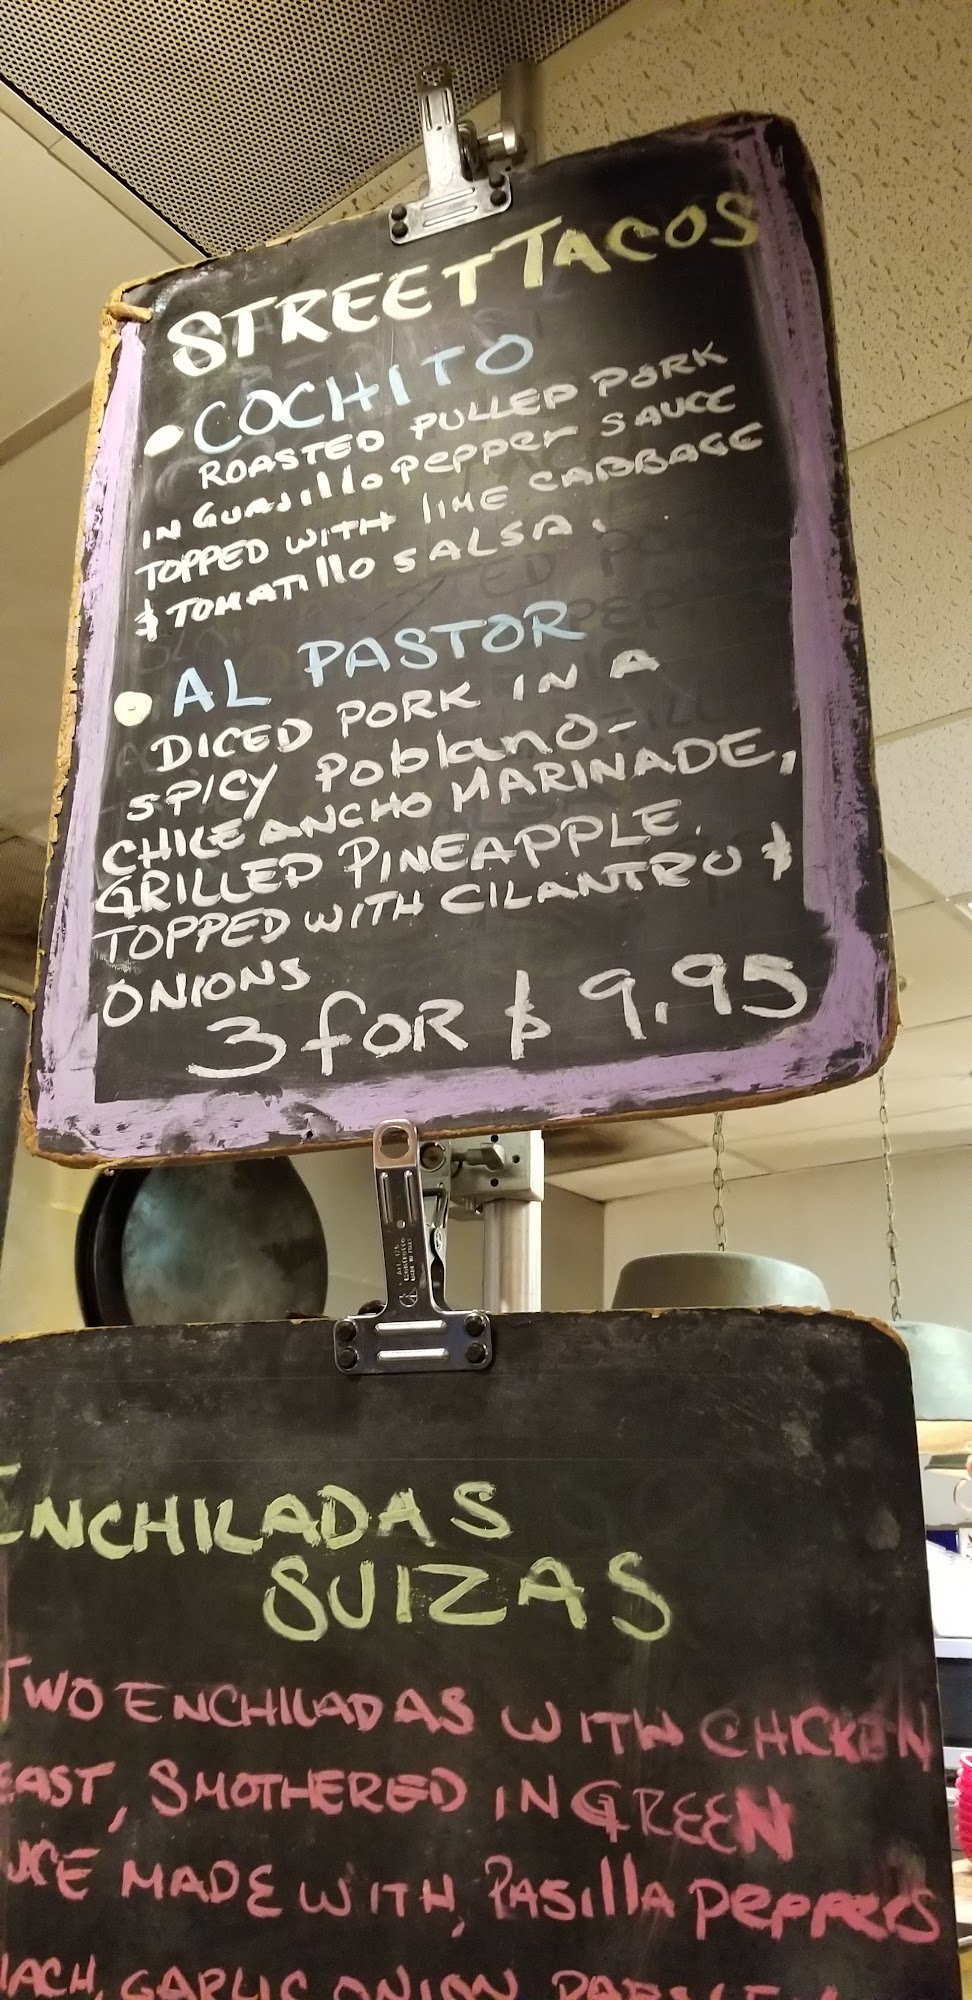 STREET TACOS
• COCHITO
ROASTED PULLED PORK
IN GUAJILLO PEPPER SAUCE
TOPPED WITH LIME CABBAGE
& TOMATILLO SALSA.
• AL PASTOR
DICED PORK IN A
SPICY POBLANO-
CHILE ANCHO MARINADE,
GRILLED PINEAPPLE.
TOPPED WITH CILANTRO &
ONIONS
3 FOR $ 9.95
ENCHILADAS
SUIZAS
TWO ENCHILADAS WITH CHICKEN
EAST, SMOTHERED IN GREEN
UCE MADE WITH, PASILLA PEPPERS
ACH, GARLIC ONION